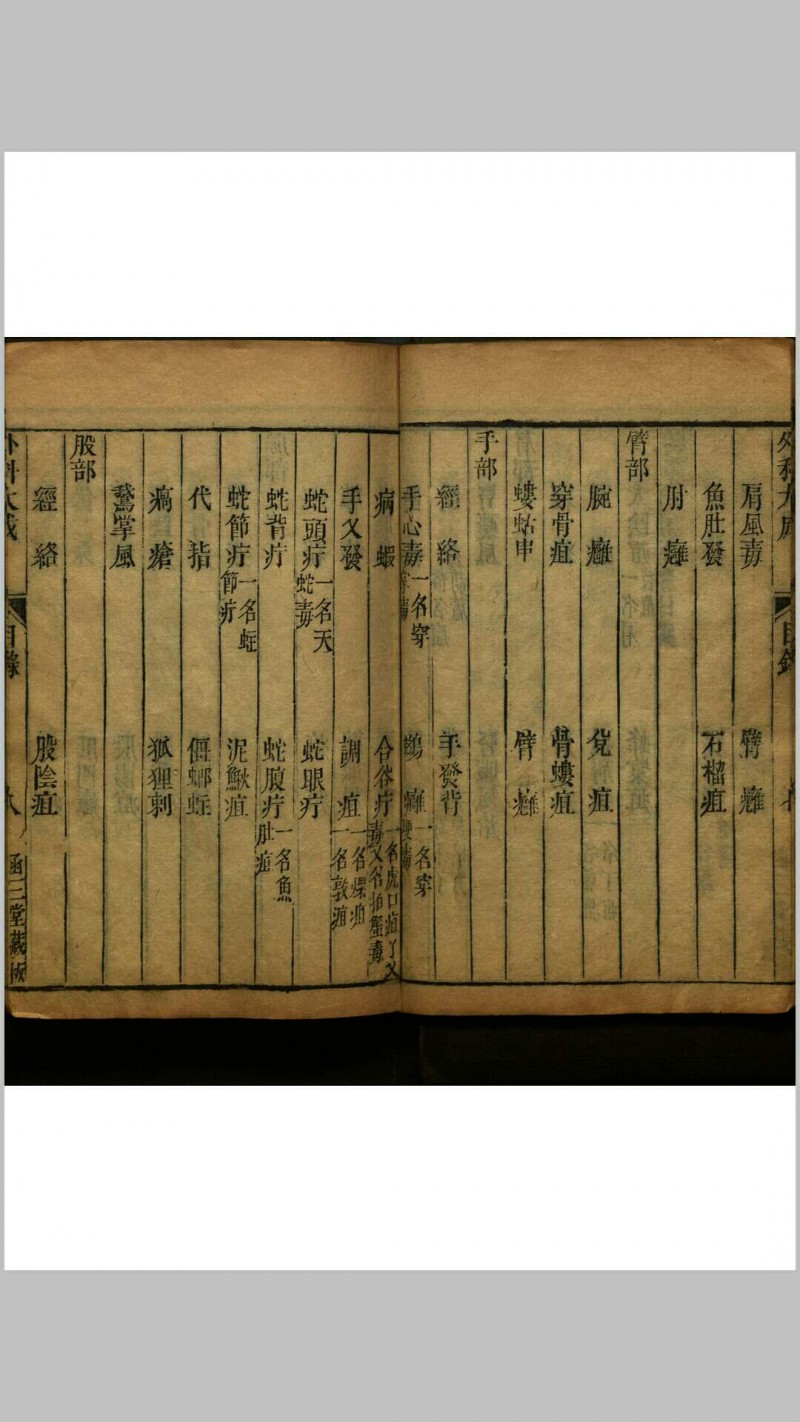 外科大成
目錄
肩風毒　臂癰
魚肚發　石榴疽
肘癰
臂部
腕癰　兌疽
穿骨疽　骨螻疽
螻蛄串　臂癰
手部
經絡　手發背
手心毒一名穿　鸛癰一名穿
病蝦　合谷疔一名虎口疽丫叉毒又名拍蟹毒
手叉發　調疽一名爍疽一名敦疽
蛇頭疔一名天蛇毒　蛇眼疔
蛇背疔　蛇腹疔一名魚肚疽
蛇節疔一名蛀節疔　泥鰍疽
代指　僵螂蛀
瘑瘡　狐狸刺
鵞掌風
股部
經絡　股陰疽
外科大成
目錄
八
函三堂藏板